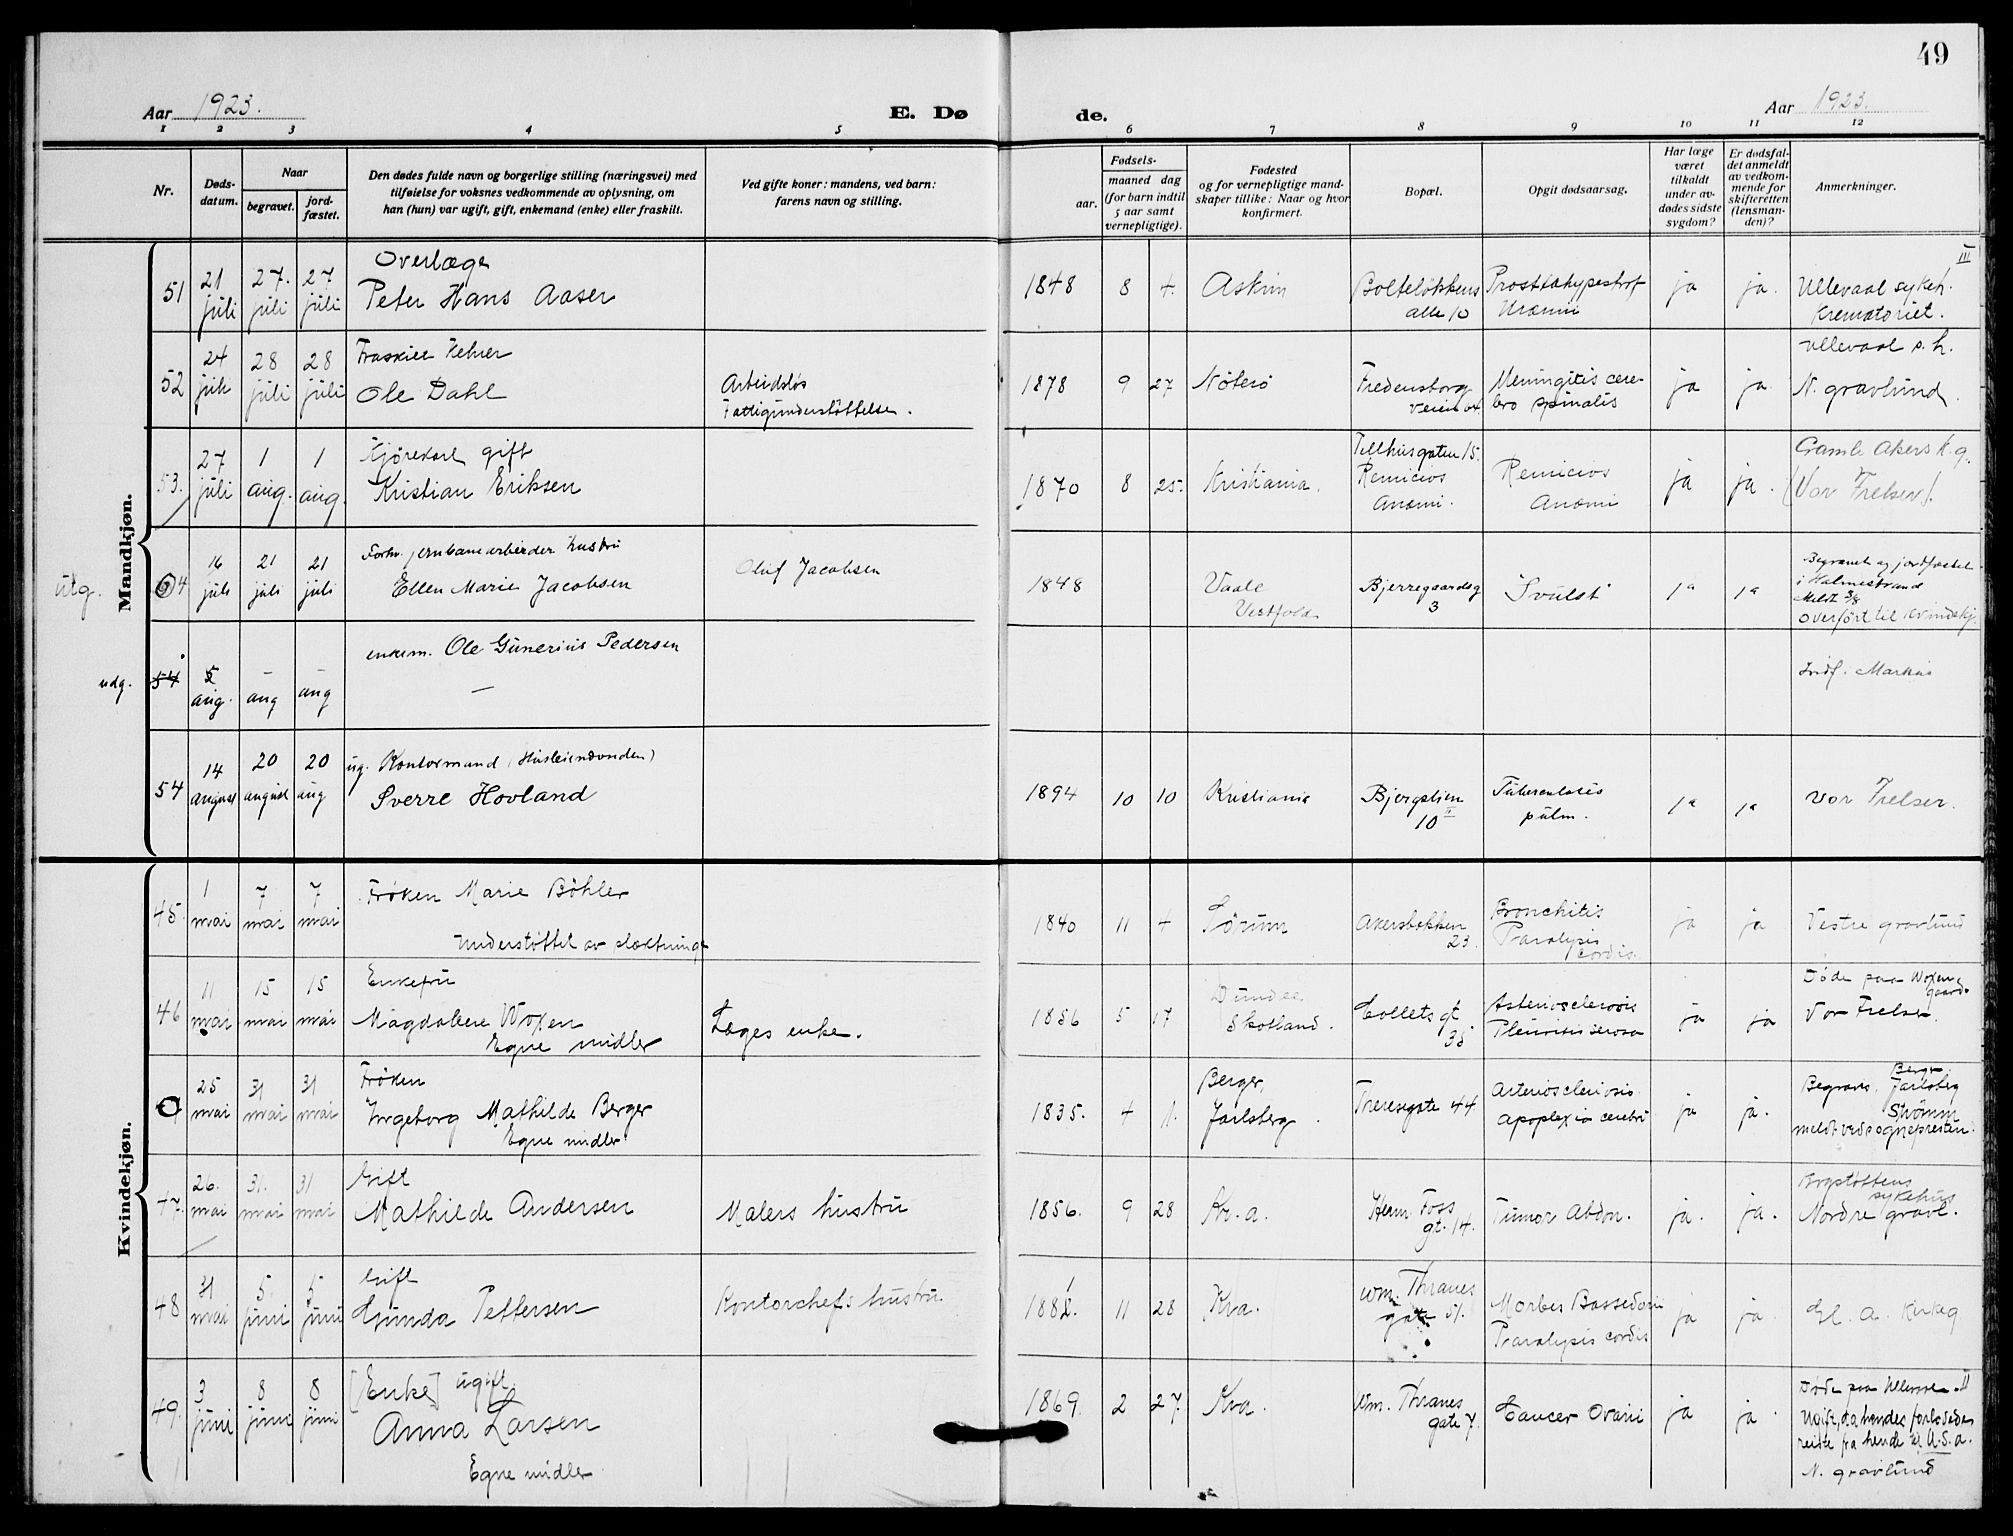 49
Aar 1923.
E. Dø
de.
Aar 1923.
1 2 3 4 5 6 7 8 9 10 11 12
Nr.
Døds-
datum.
Naar
begravet.
jord-
fæstet.
Den dødes fulde navn og borgerlige stilling (næringsvei) med
tilføielse for voksnes vedkommende av oplysning, om
han (hun) var ugift, gift, enkemand (enke) eller fraskilt.
Ved gifte koner: mandens, ved barn:
farens navn og stilling.
Fødsels-
aar.
maaned dag
(for barn indtil
5 aar samt
vernepligtige).
Fødested
og for vernepligtige mand-
skaper tillike: Naar og hvor
konfirmert.
Bopæl.
Opgit dødsaarsag.
Har læge
været
tilkaldt
under av-
dødes sidste
sygdom?
Er dødsfal-
det anmeldt
av vedkom-
mende for
skifteretten
(lensman-
den)?
Anmerkninger.
Mandkjøn.
51
21
juli
27.
juli
27
juli
Overlæge
Peter Hans Aaser
1848 8 4. Askim
Bolteløkkens
alle 10
Uræmi
ja ja.
III
Ullevaal sykeh.
Krematoriet.
52
24
juli
28
juli
28
juli
Ole Dahl
Arbeidsløs
Fattigunderstøttelse.
1878 9 27 Nøterø
Fredensborg
veien
Meningitis cere-
bro spinalis
ja ja.
Ullevaal s.h.
N. gravlund.
53.
27
juli
1
aug.
1
aug.
Kjørekarl gift
Kristian Eriksen
1870 8 25. Kristiania.
15.
Remicios
Anæmi.
Remicios
Anæmi
ja ja.
Gamle Akers k.g.
(Vor Frelser).
utg.
54
16
juli
21
juli
21
juli
Forhv. jernbanearbeider hustru
Ellen Marie Jacobsen
Oluf Jacobsen
1848
Vaale
Vestfold
Bjerregaardsg
3
"Svulst"
ja ja
Begravet og jordfæstet
i Holmestrand
Meldt 3/8
Overført til Kvindekj.
udg.
54
5
aug.
—
aug
—
aug
enkem. Ole Gunerius Pedersen
—
Indf. Markus
54
14
august
20
august
20
aug
ug. Kontormand (Husleienævnden)
Sverre Hovland
1894 10 10 Kristiania
Bjergstien
10 II
Tuberculosis
pulm.
ja ja
Vor Frelser.
Kvindekjøn.
45.
1
mai
7
mai
7
mai
Frøken Marie Bøhler
Understøttet av slektninge
1840 11 4 Sørum
Akersbakken
23.
Bronchitis
Paralysis
cordis.
ja ja
Vestre gravlund
46
11
mai
15
mai
15
mai
Enkefru
Magdalene Woxen
Egne midler
Læges enke.
1856 5 17
Dundee
Skotland.
Collets gt.
35
Arteriosclerosis
Pleuritis serosa
ja ja
Døde paa Woxen
gaard.
Vor Frelser.
25
mai
31
mai
31
mai
Frøken
Ingeborg Mathilde Berger
Egne midler
1835. 4 1.
Berger,
Jarlsberg.
Theresegate 44
Arteriosclerosis.
Apoplexia cerebri
ja ja.
Berger,
Begraves. Jarlsberg
Strømm
meldt ved sognepresten.
47.
26.
mai
31.
mai
31
mai
Gift
Mathilde Andersen
Malers hustru
1856. 9 28 Kr.a.
Herm. Foss
gt. 14.
Tumor Abdom.
ja. ja.
Krogstøttens
sykehus
Nordre gravl.
48
31
mai
5.
juni
5
juni
Gift
Gunda Pettersen
Kontorchefs hustru
1881. 11 28 Kra.
Wm. Thranes
gate 51.
Morbus Bassedowii
Paralysis cordis
ja ja.
Gl. A. Kirkeg
49.
3
juni
8
juni
8
juni
[Enke] ugift.
Anna Larsen
Egne midler
1869. 2 27. Kra.
Wm. Thranes
gate 7.
Cancer Ovarii
ja ja.
Døde paa Ullevaal. II
Ugift, da hendes forlovede
reiste fra hende til U.S.A.
N. gravlund